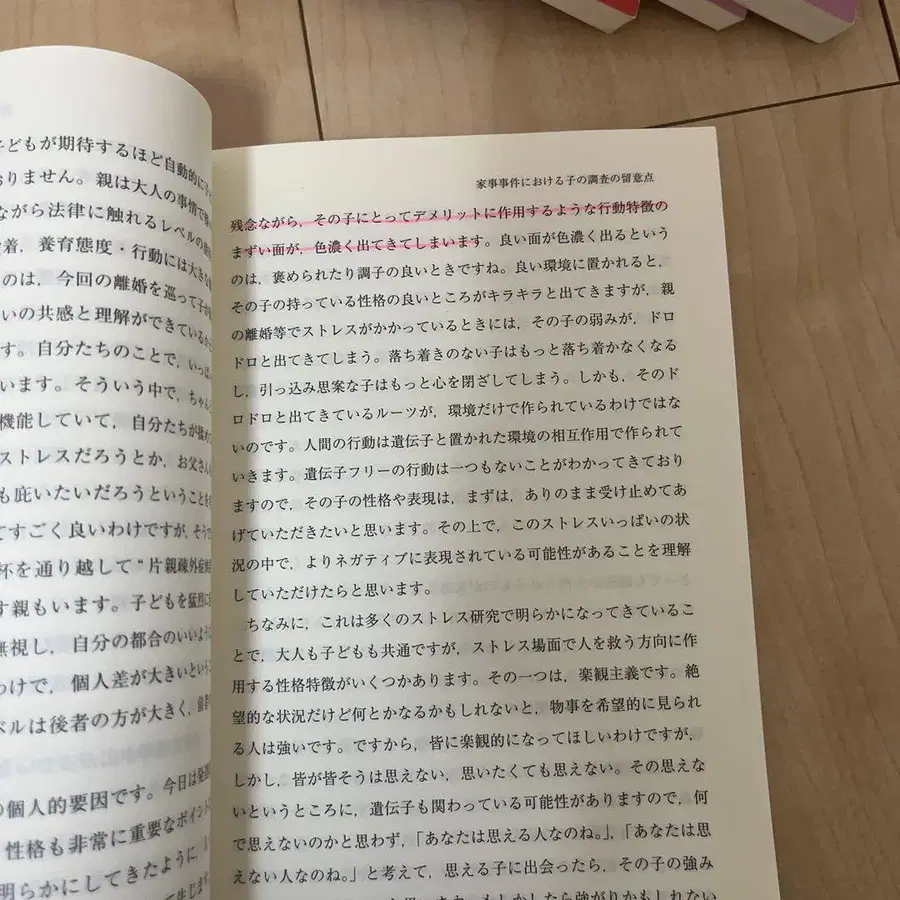 子どもが期待するほど自動的に
おりません。親は大人の事情で
ながら法律に触れるレベルの
着，養育態度・行動には大き
のは，今回の離婚を巡って子が
いの共感と理解ができているか
す。自分たちのことで，いっぱ
います。そういう中で，ちゃん
機能していて，自分たちが
ストレスだろうとか，お父さん
も庇いたいだろうということを
てすごく良いわけですが，そう
杯を通り越して“片親疎外症
す親もいます。子どもを猛烈に
無視し，自分の都合のいいように
わけで，個人差が大きいという
ベルは後者の方が大きく，
の個人的要因です。今日は発
性格も非常に重要なポイント
明らかにしてきたように，
て生じます
家事事件における子の調査の留意点
残念ながら，その子にとってデメリットに作用するような行動特徴の
まずい面が，色濃く出てきてしまいます。良い面が色濃く出るという
のは，褒められたり調子の良いときですね。良い環境に置かれると，
その子の持っている性格の良いところがキラキラと出てきますが，親
の離婚等でストレスがかかっているときには，その子の弱みが，ドロ
ドロと出てきてしまう。落ち着きのない子はもっと落ち着かなくなる
し，引っ込み思案な子はもっと心を閉ざしてしまう。しかも，そのド
ロドロと出てきているルーツが，環境だけで作られているわけではな
いのです。人間の行動は遺伝子と置かれた環境の相互作用で作られて
いきます。遺伝子フリーの行動は一つもないことがわかってきており
ますので，その子の性格や表現は，まずは，ありのまま受け止めてあ
げていただきたいと思います。その上で，このストレスいっぱいの状
況の中で，よりネガティブに表現されている可能性があることを理解
していただけたらと思います。
ちなみに，これは多くのストレス研究で明らかになってきているこ
とで，大人も子どもも共通ですが，ストレス場面で人を救う方向に作
用する性格特徴がいくつかあります。その一つは，楽観主義です。絶
望的な状況だけど何とかなるかもしれないと，物事を希望的に見られ
る人は強いです。ですから，皆に楽観的になってほしいわけですが，
しかし，皆が皆そうは思えない，思いたくても思えない。その思えな
いというところに，遺伝子も関わっている可能性がありますので，何
で思えないのかと思わず，「あなたは思える人なのね。」，「あなたは思
えない人なのね。」と考えて，思える子に出会ったら，その子の強み
思います。もしかしたら強がりかもしれない